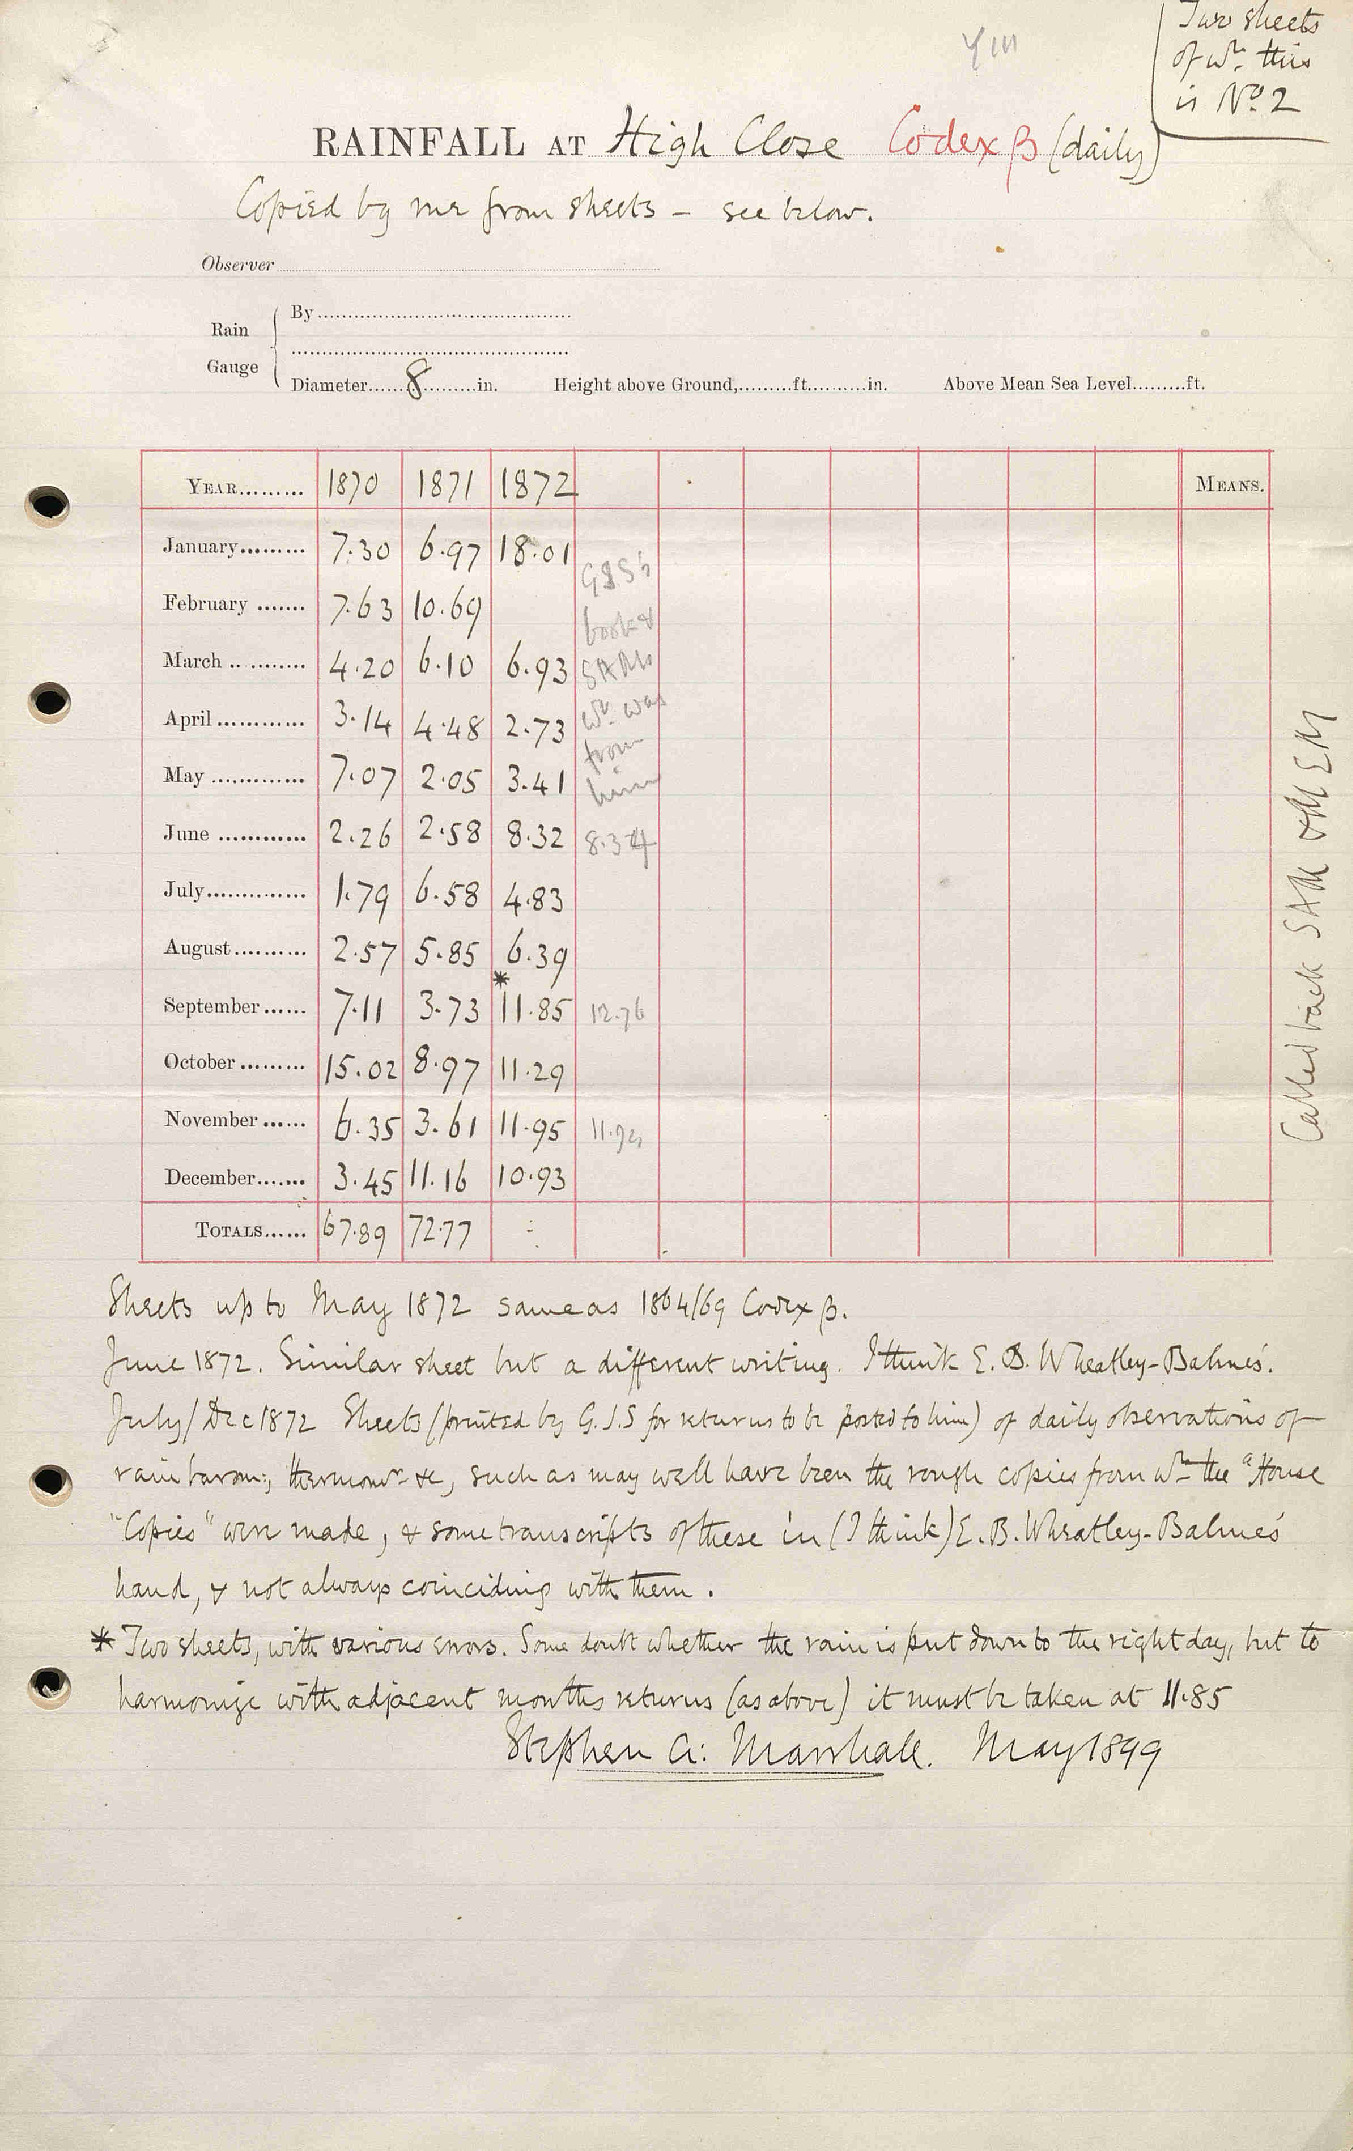 Two sheets
of wh. this
is No. 2
RAINFALL AT High Close Codex β (daily)
Copied by me from sheets — see below.
Observer
Rain Gauge { By
Diameter 8 in. Height above Ground, ft. in. Above Mean Sea Level ft.
YEAR 1870 1871 1872 MEANS.
January 7.30 6.97 18.01
February 7.63 10.69
March 4.20 6.10 6.93
April 3.14 4.48 2.73
May 7.07 2.05 3.41
June 2.26 2.58 8.32 8.34
July 1.79 6.58 4.83
August 2.57 5.85 6.39
September 7.11 3.73 *11.85 12.76
October 15.02 8.97 11.29
November 6.35 3.61 11.95 11.92
December 3.45 11.16 10.93
TOTALS 67.89 72.77
GJS's
book &
SAM's
wh. was
from
him
Called back SAM & M EM
Sheets up to May 1872 same as 1864/69 Codex β.
June 1872. Similar sheet but a different writing. I think E. B. Wheatley-Balme's.
July/Dec 1872 Sheets (printed by G.J.S for returns to be posted to him) of daily observations of
rain barom:, thermomr. &c, such as may well have been the rough copies from wh. the "House
"Copies" were made, & some transcripts of these in (I think) E. B. Wheatley-Balme's
hand, & not always coinciding with them.
* Two sheets, with various errors. Some doubt whether the rain is put down to the right day, but to
harmonize with adjacent months returns (as above) it must be taken at 11.85
Stephen A: Marshall. May 1899